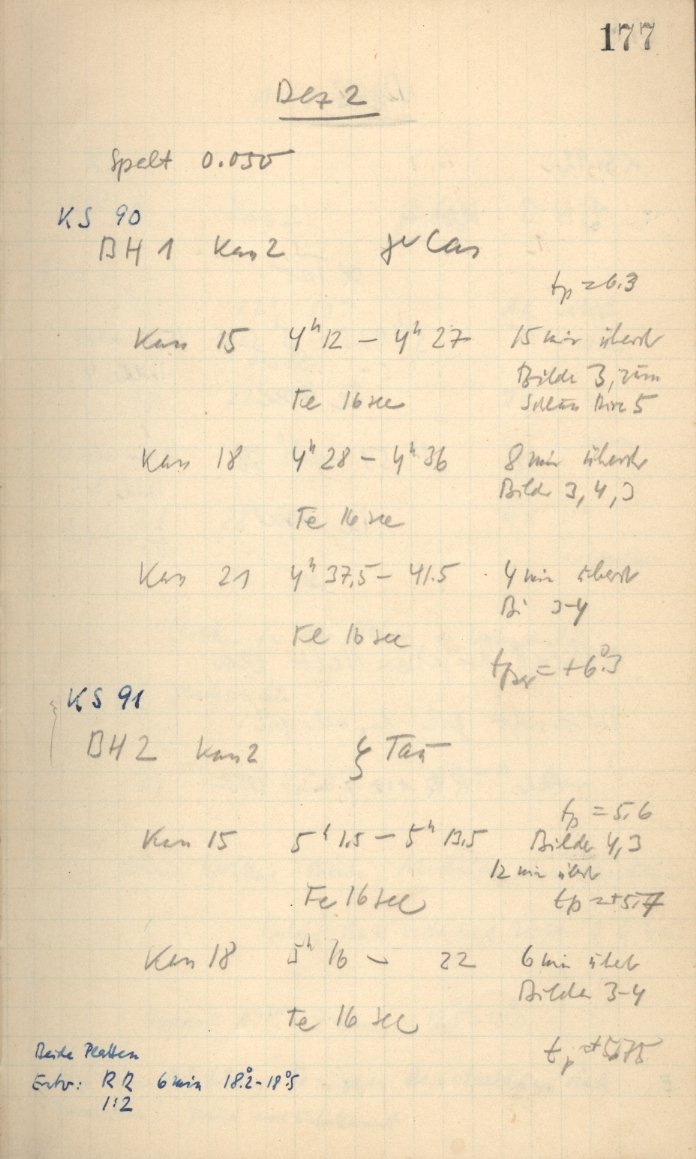 177
Dez 2
Spalt 0.050
KS 90
BH 1 Kas 2 γ Cas
tp = 6.3
Kas 15 4h 12 – 4h 27 15 min überb
Bilder 3, zum
Schluss 5
Fe 16 sec
Kas 18 4h 28 – 4h 36 8 min überb
Bilder 3, 4, 3
Fe 16 sec
Kas 21 4h 37,5 – 41.5 4 min überb
Bi 3-4
Fe 16 sec
= +6°.3
KS 91
BH 2 Kas 2 ζ Tau
tp = 5.6
Kas 15 5h 1,5 – 5h 13.5 Bilder 4,3
12 min überb
Fe 16 sec tp = +5.7
Kas 18 5h 16 – 22 6 min überb
Bilder 3-4
Fe 16 sec
Beide Platten
Entw: RR 6 min 18°.2 – 18°.5
1:2